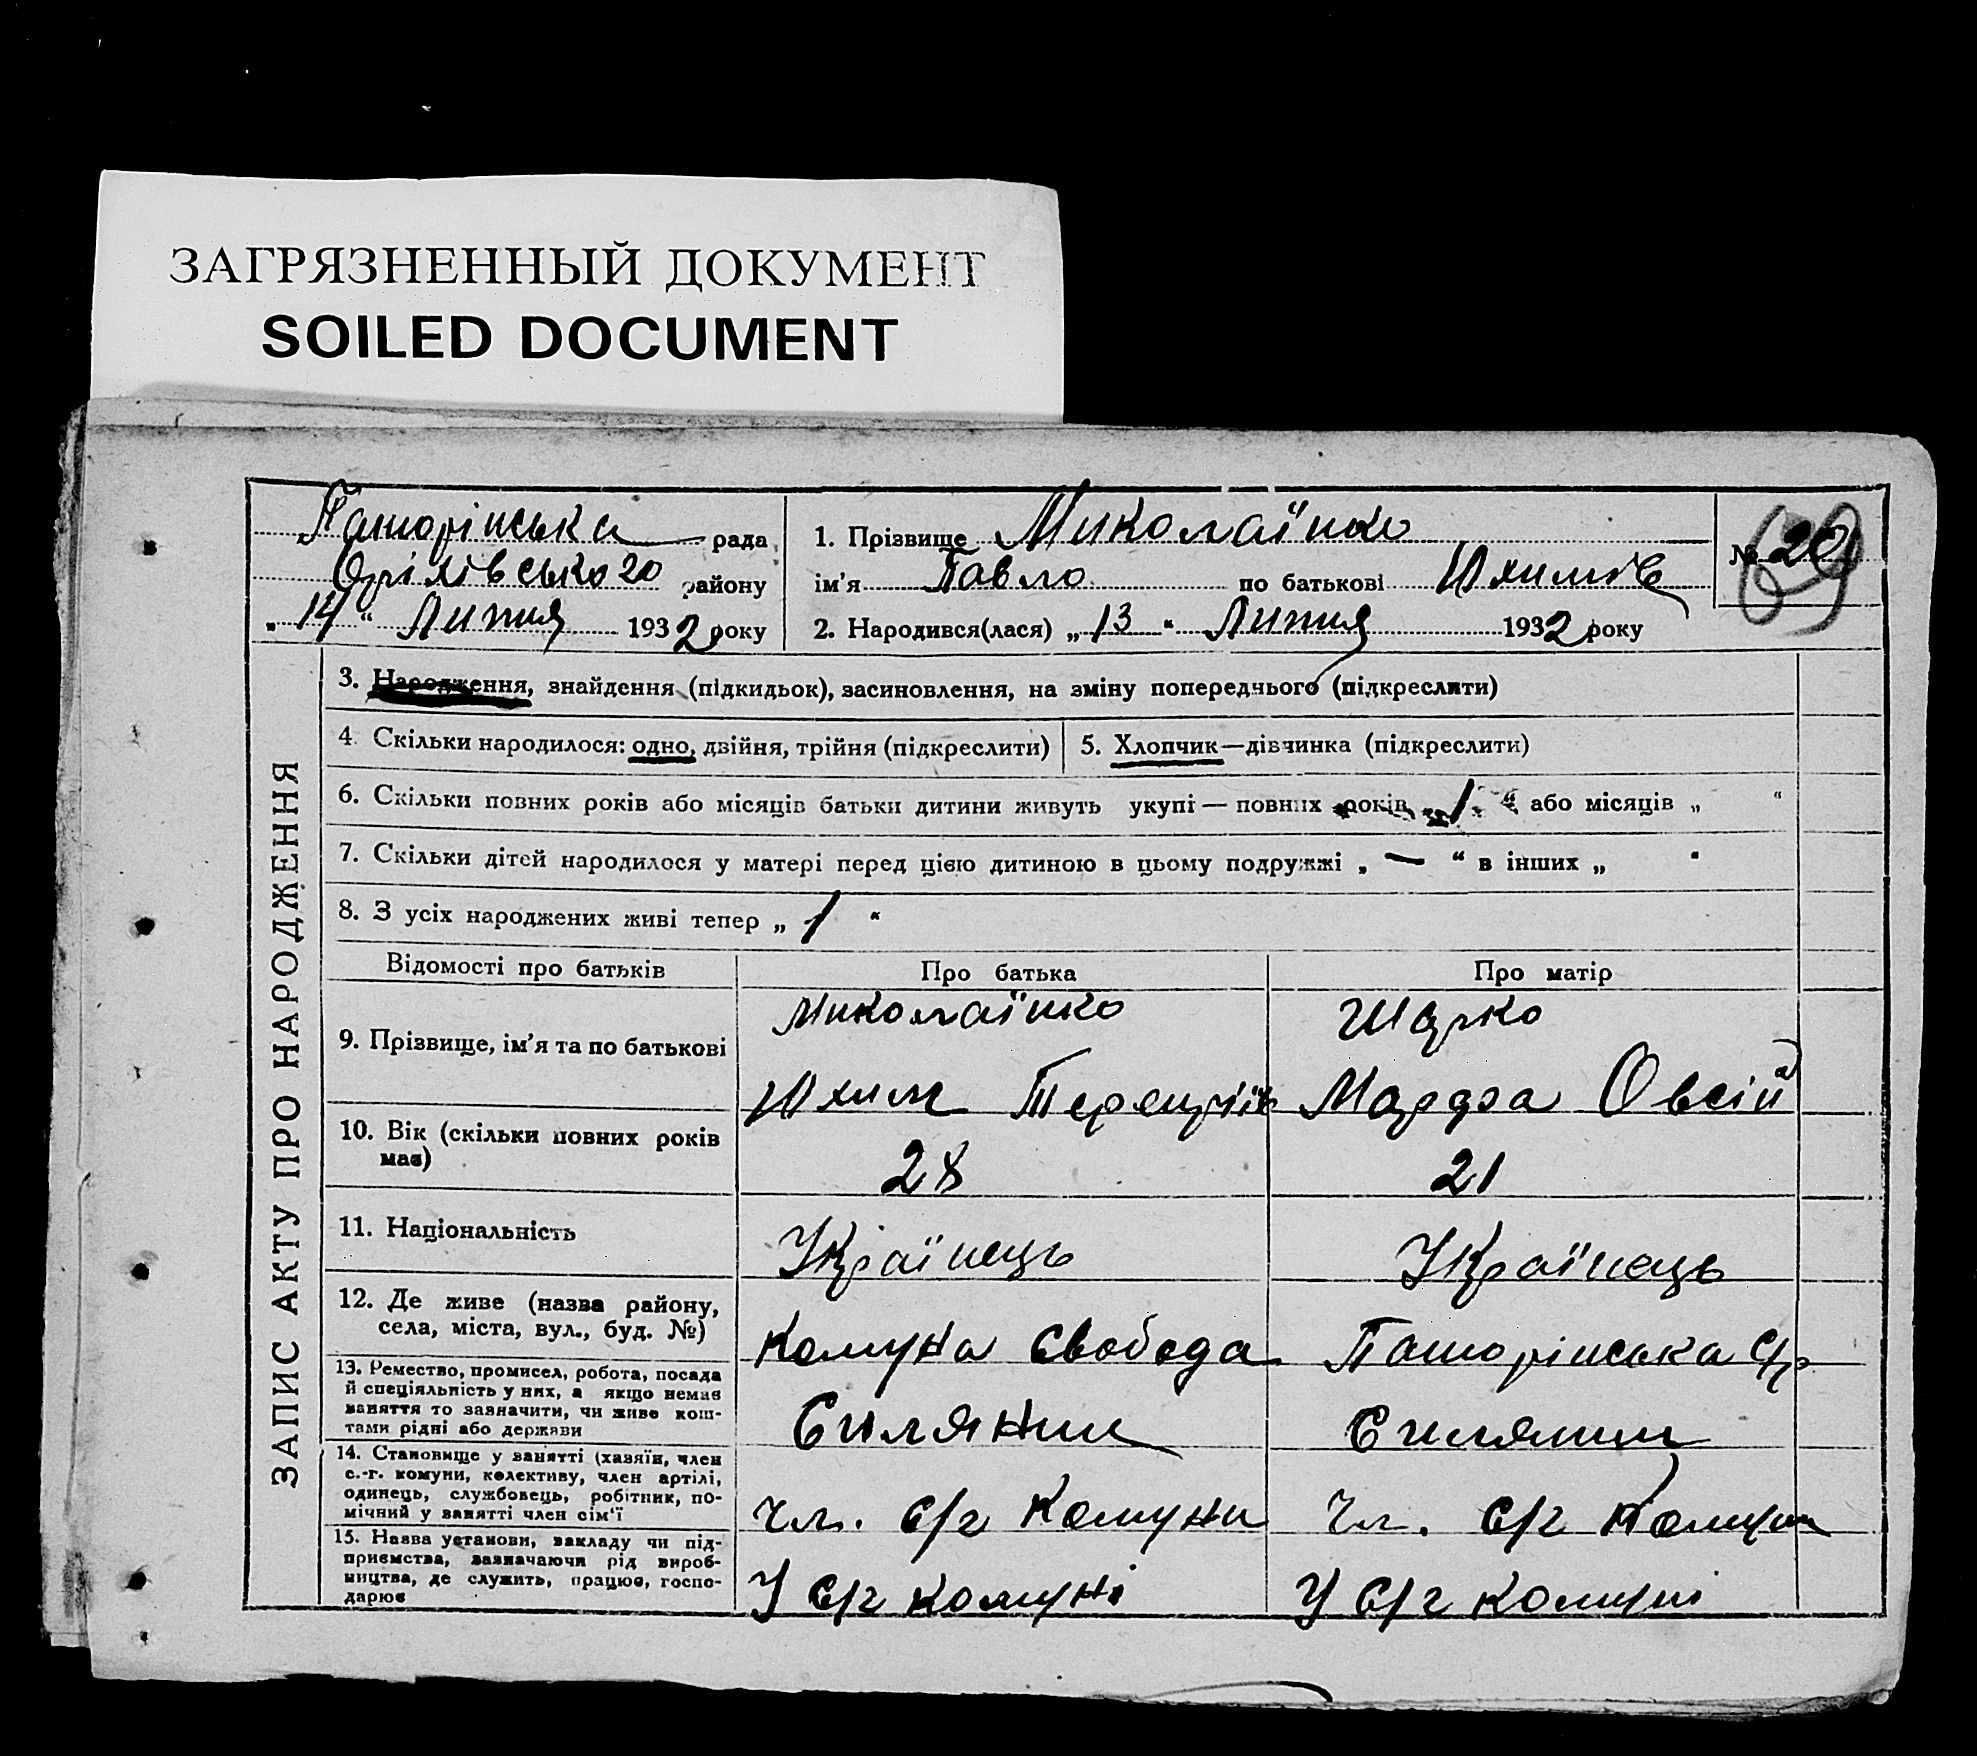 ЗАГРЯЗНЕННЫЙ ДОКУМЕНТ
SOILED DOCUMENT
рада
Оріхівського району
„ 14 “ Липня 1932 року
1. Прізвище Миколаїнко
ім'я Павло по батькові Юхимів
2. Народився(лася) „ 13 “ Липня 1932 року
№ 20
69
ЗАПИС АКТУ ПРО НАРОДЖЕННЯ
3. Народження, знайдення (підкидьок), засиновлення, на зміну попереднього (підкреслити)
4. Скільки народилося: одно, двійня, трійня (підкреслити)
5. Хлопчик—дівчинка (підкреслити)
6. Скільки повних років або місяців батьки дитини живуть укупі — повних років „ 1 “ або місяців „ “
7. Скільки дітей народилося у матері перед цією дитиною в цьому подружжі „ — “ в інших „ “
8. З усіх народжених живі тепер „ 1 “
Відомості про батьків
Про батька
Про матір
9. Прізвище, ім'я та по батькові
Миколаїнко
Юхим
Шарко
Марфа Овсій
10. Вік (скільки повних років
має)
28
21
11. Національність
Українець
Українець
12. Де живе (назва району,
села, міста, вул., буд. №)
Комуна Свобода
с/р
13. Ремество, промисел, робота, посада
й спеціяльність у них, а якщо немає
заняття то зазначити, чи живе кош-
тами рідні або держави
Силянин
Силянин
14. Становище у занятті (хазяїн, член
с.-г. комуни, колективу, член артілі,
одинець, службовець, робітник, по-
мічний у занятті член сім'ї
чл. с/г Комуни
чл. с/г Комуни
15. Назва установи, закладу чи під-
приємства, зазначаючи рід вироб-
ництва, де служить, працює, госпо-
дарює
У с/г комуні
У с/г комуні